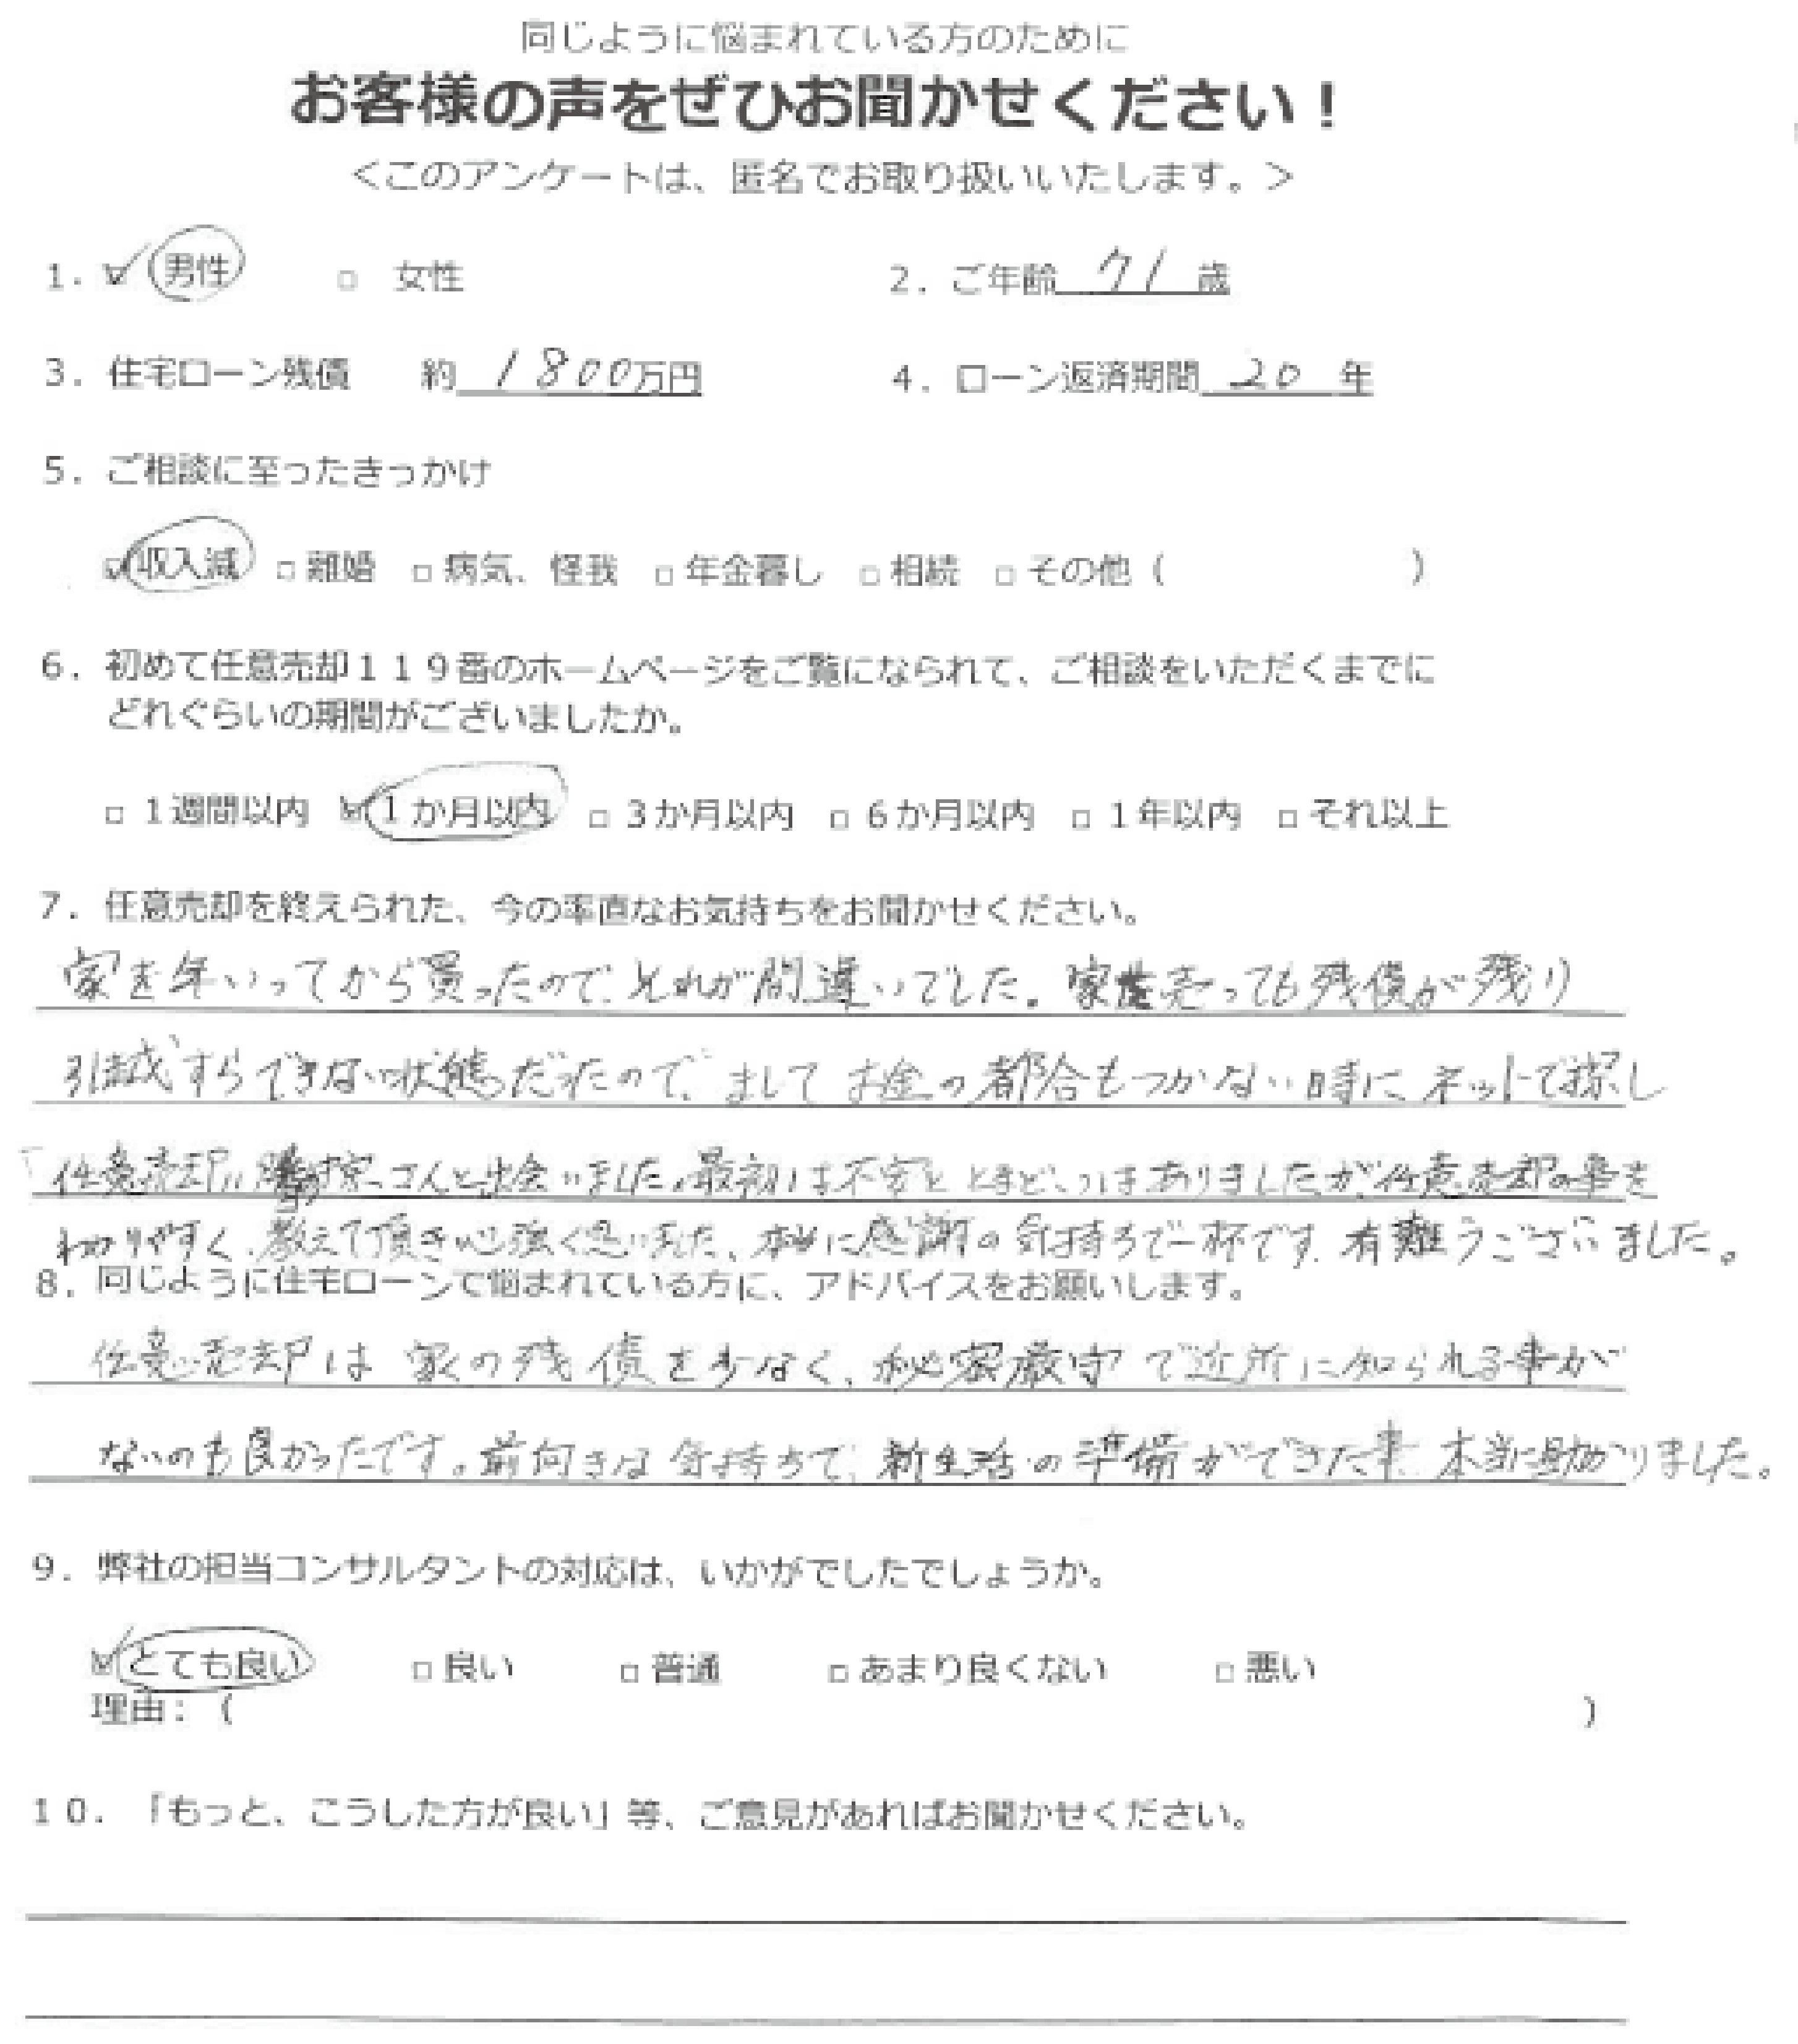 同じように悩まれている方のために
お客様の声をぜひお聞かせください！
＜このアンケートは、匿名でお取り扱いいたします。＞
1. ☑ 男性 □ 女性 2. ご年齢 71 歳
3. 住宅ローン残債 約 1800万円 4. ローン返済期間 20 年
5. ご相談に至ったきっかけ
☑収入減 □離婚 □病気、怪我 □年金暮し □相続 □その他（ ）
6. 初めて任意売却１１９番のホームページをご覧になられて、ご相談をいただくまでに
どれぐらいの期間がございましたか。
□１週間以内 ☑１か月以内 □３か月以内 □６か月以内 □１年以内 □それ以上
7. 任意売却を終えられた、今の率直なお気持ちをお聞かせください。
家を年いってから買ったので、それが間違いでした。家を売っても残債が残り
引越すらできない状態だったので、ましてお金の都合もつかない時にネットで探し
「任意売却 さんと出会いました。最初は不安と とまどいはありましたが、任意売却の事を
わかりやすく、教えて頂き心強く思いました、本当に感謝の気持ちで一杯です。有難うございました。
8. 同じように住宅ローンで悩まれている方に、アドバイスをお願いします。
任意売却は 家の残債を少なく、秘密厳守で近所に知られる事が
ないのも良かったです。前向きな気持ちで、新生活の準備ができた事 本当に助かりました。
9. 弊社の担当コンサルタントの対応は、いかがでしたでしょうか。
☑とても良い □良い □普通 □あまり良くない □悪い
理由：（ ）
１０. 「もっと、こうした方が良い」等、ご意見があればお聞かせください。